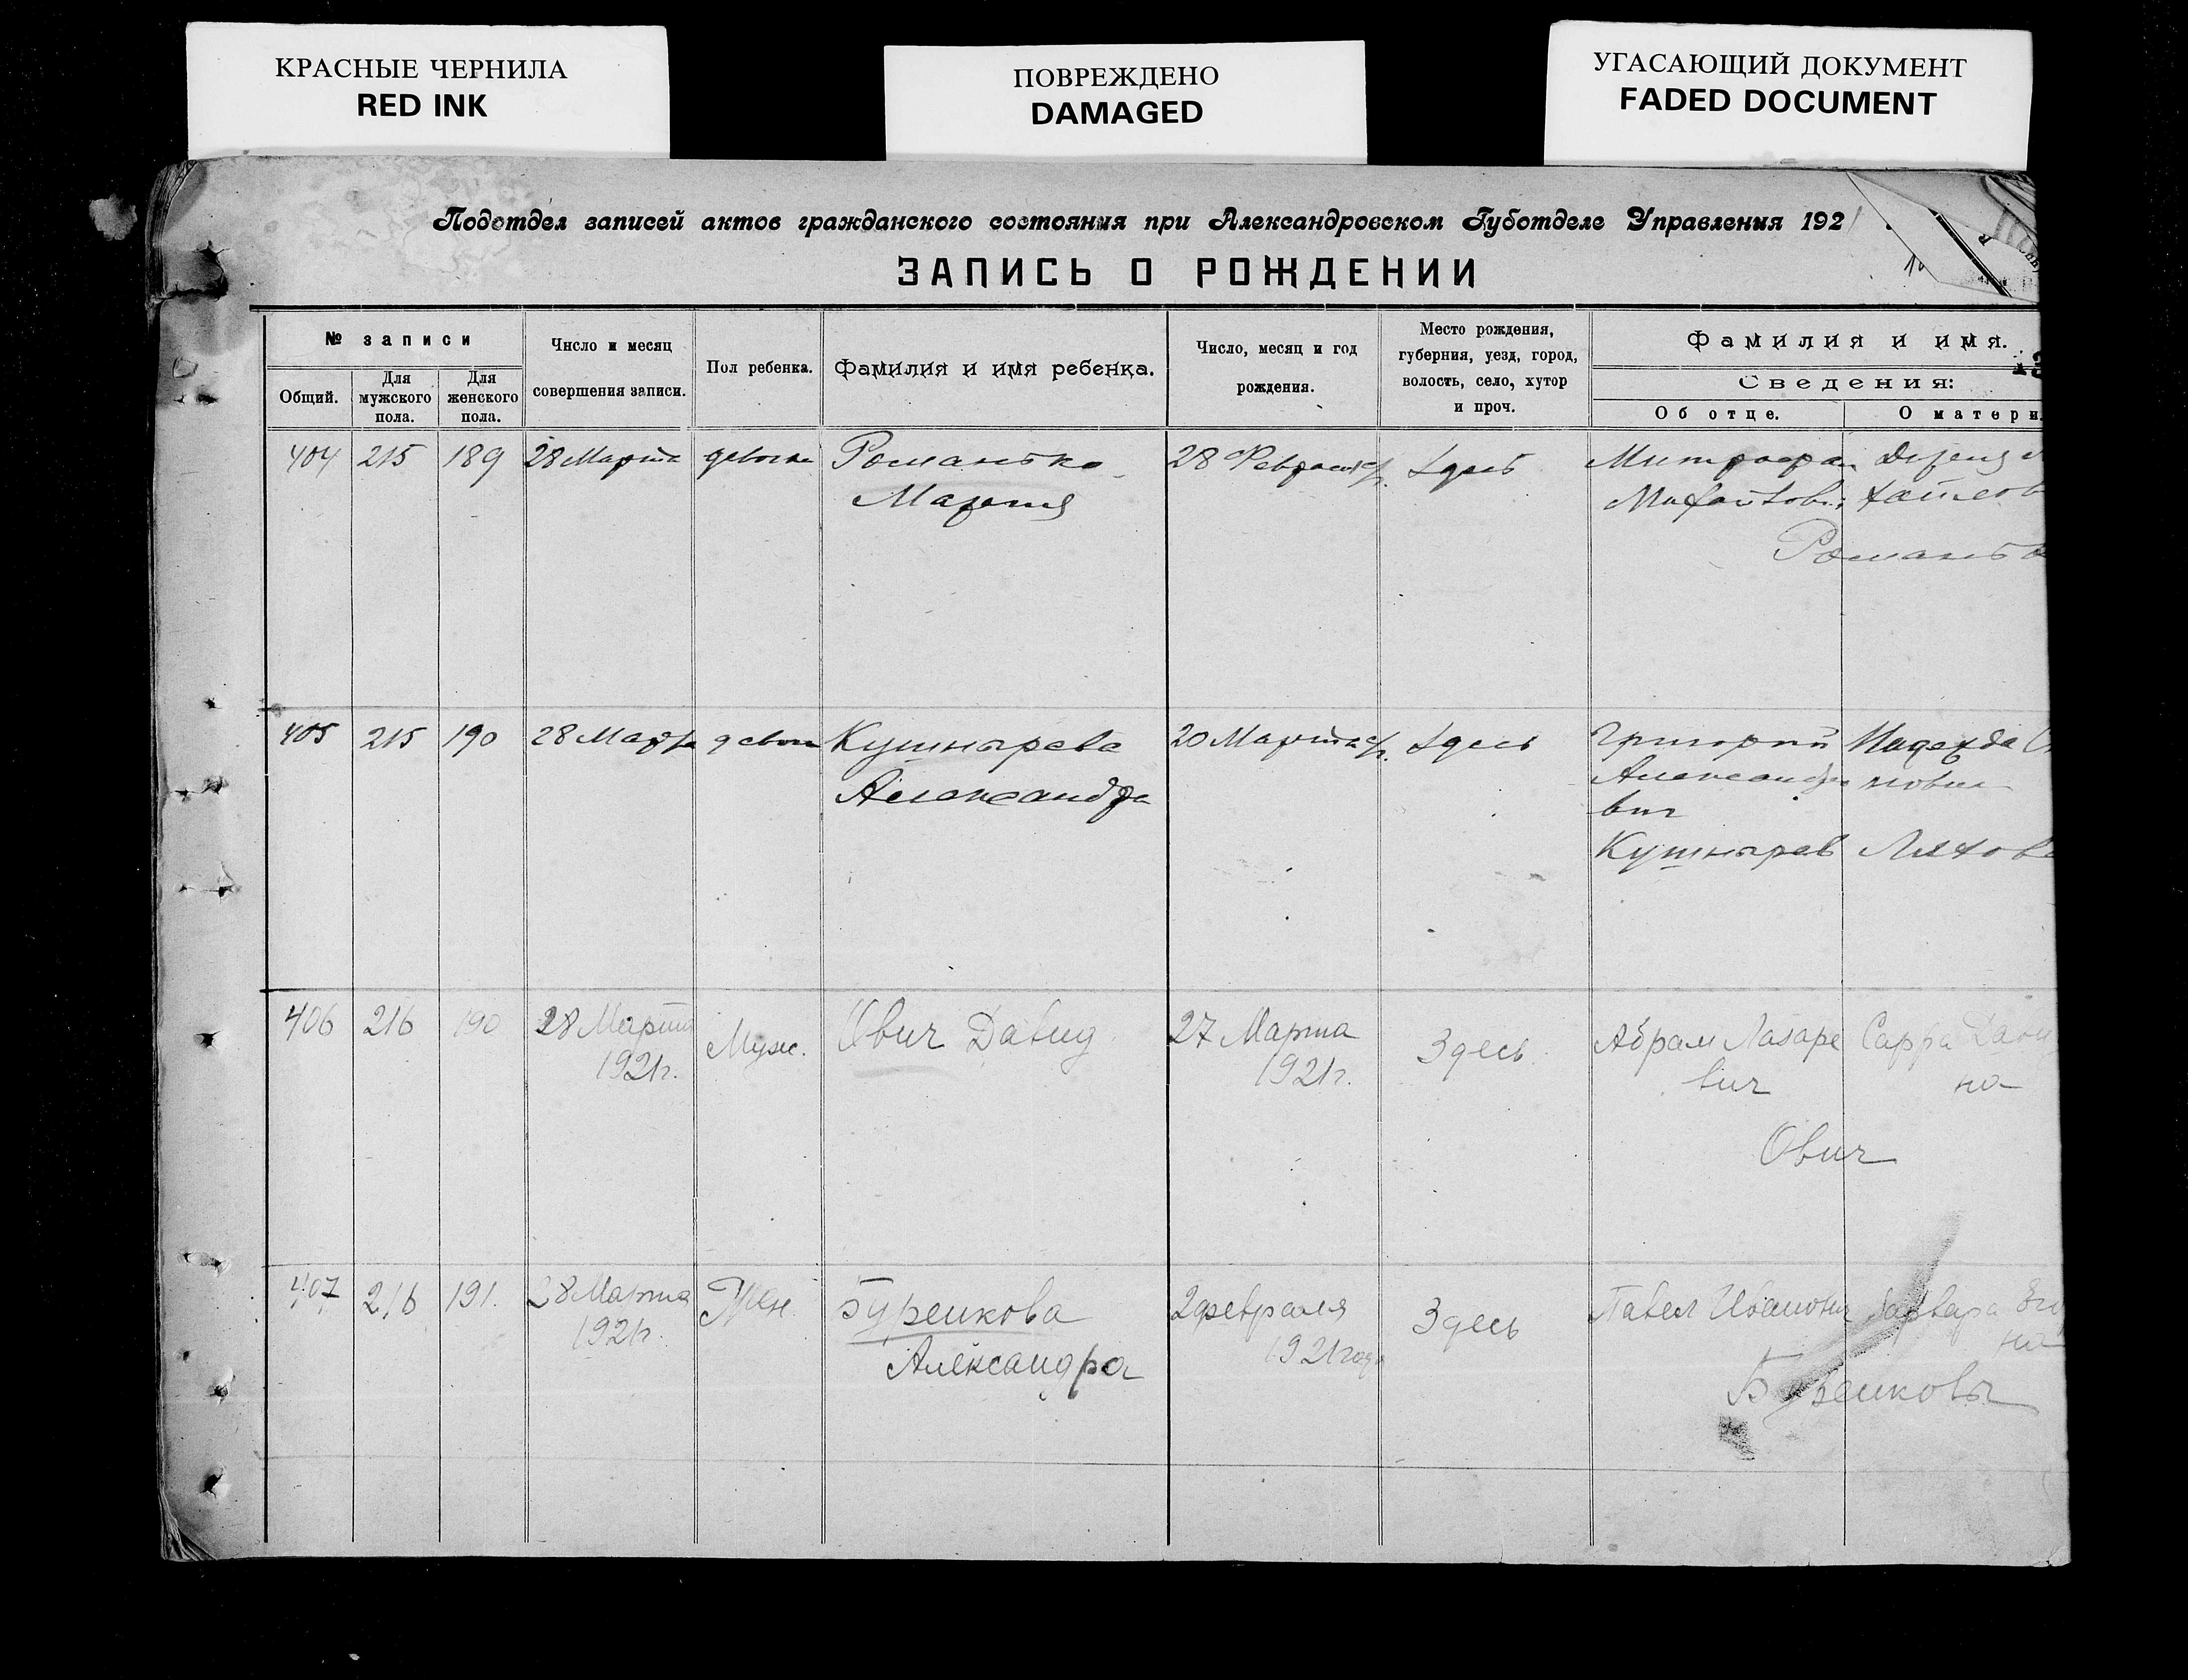 КРАСНЫЕ ЧЕРНИЛА
RED INK
ПОВРЕЖДЕНО
DAMAGED
УГАСАЮЩИЙ ДОКУМЕНТ
FADED DOCUMENT
Подотдел записей актов гражданского состояния при Александровском Губотделе Управления 1921
ЗАПИСЬ О РОЖДЕНИИ
№ записи
Общий.
Для мужского пола.
Для женского пола.
Число и месяц совершения записи.
Пол ребенка.
Фамилия и имя ребенка.
Число, месяц и год рождения.
Место рождения, губерния, уезд, город, волость, село, хутор и проч.
Фамилия и имя.
Сведения:
Об отце.
О матери
404 215 189 28 Марта девочка Романько 28 Февраля Здесь Митрофан
Мария
Романько
405 215 190 28 Марта Кушнарева 20 Марта Здесь Григорий Надежда
Александра Александро
вич
Кушнарев Ляхова
406 216 190 28 Марта Муж. Ович Давид 27 Марта Здесь Абрам Лазаре Сарра
1921г. 1921г. вич на
Ович
407 216 191. 28 Марта Жен. Буренкова 2 февраля Здесь Павел Иванович Варвара
1921г. Александра 1921 года на
Буренковы